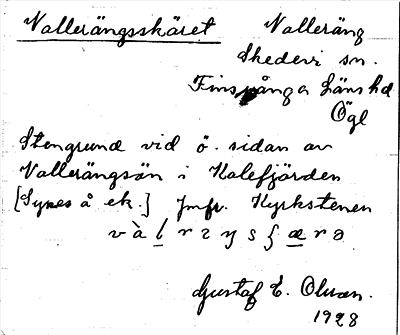 Vallerängsskäret Valleräng
Skedevi sn.
Finspånga Länshd
Ögl
Stengrund vid ö. sidan av
Vallerängsön i Kalefjärden
[Synes å ek.] Jmfr. Kyrkstenen
Gustaf E. Olsson.
1928